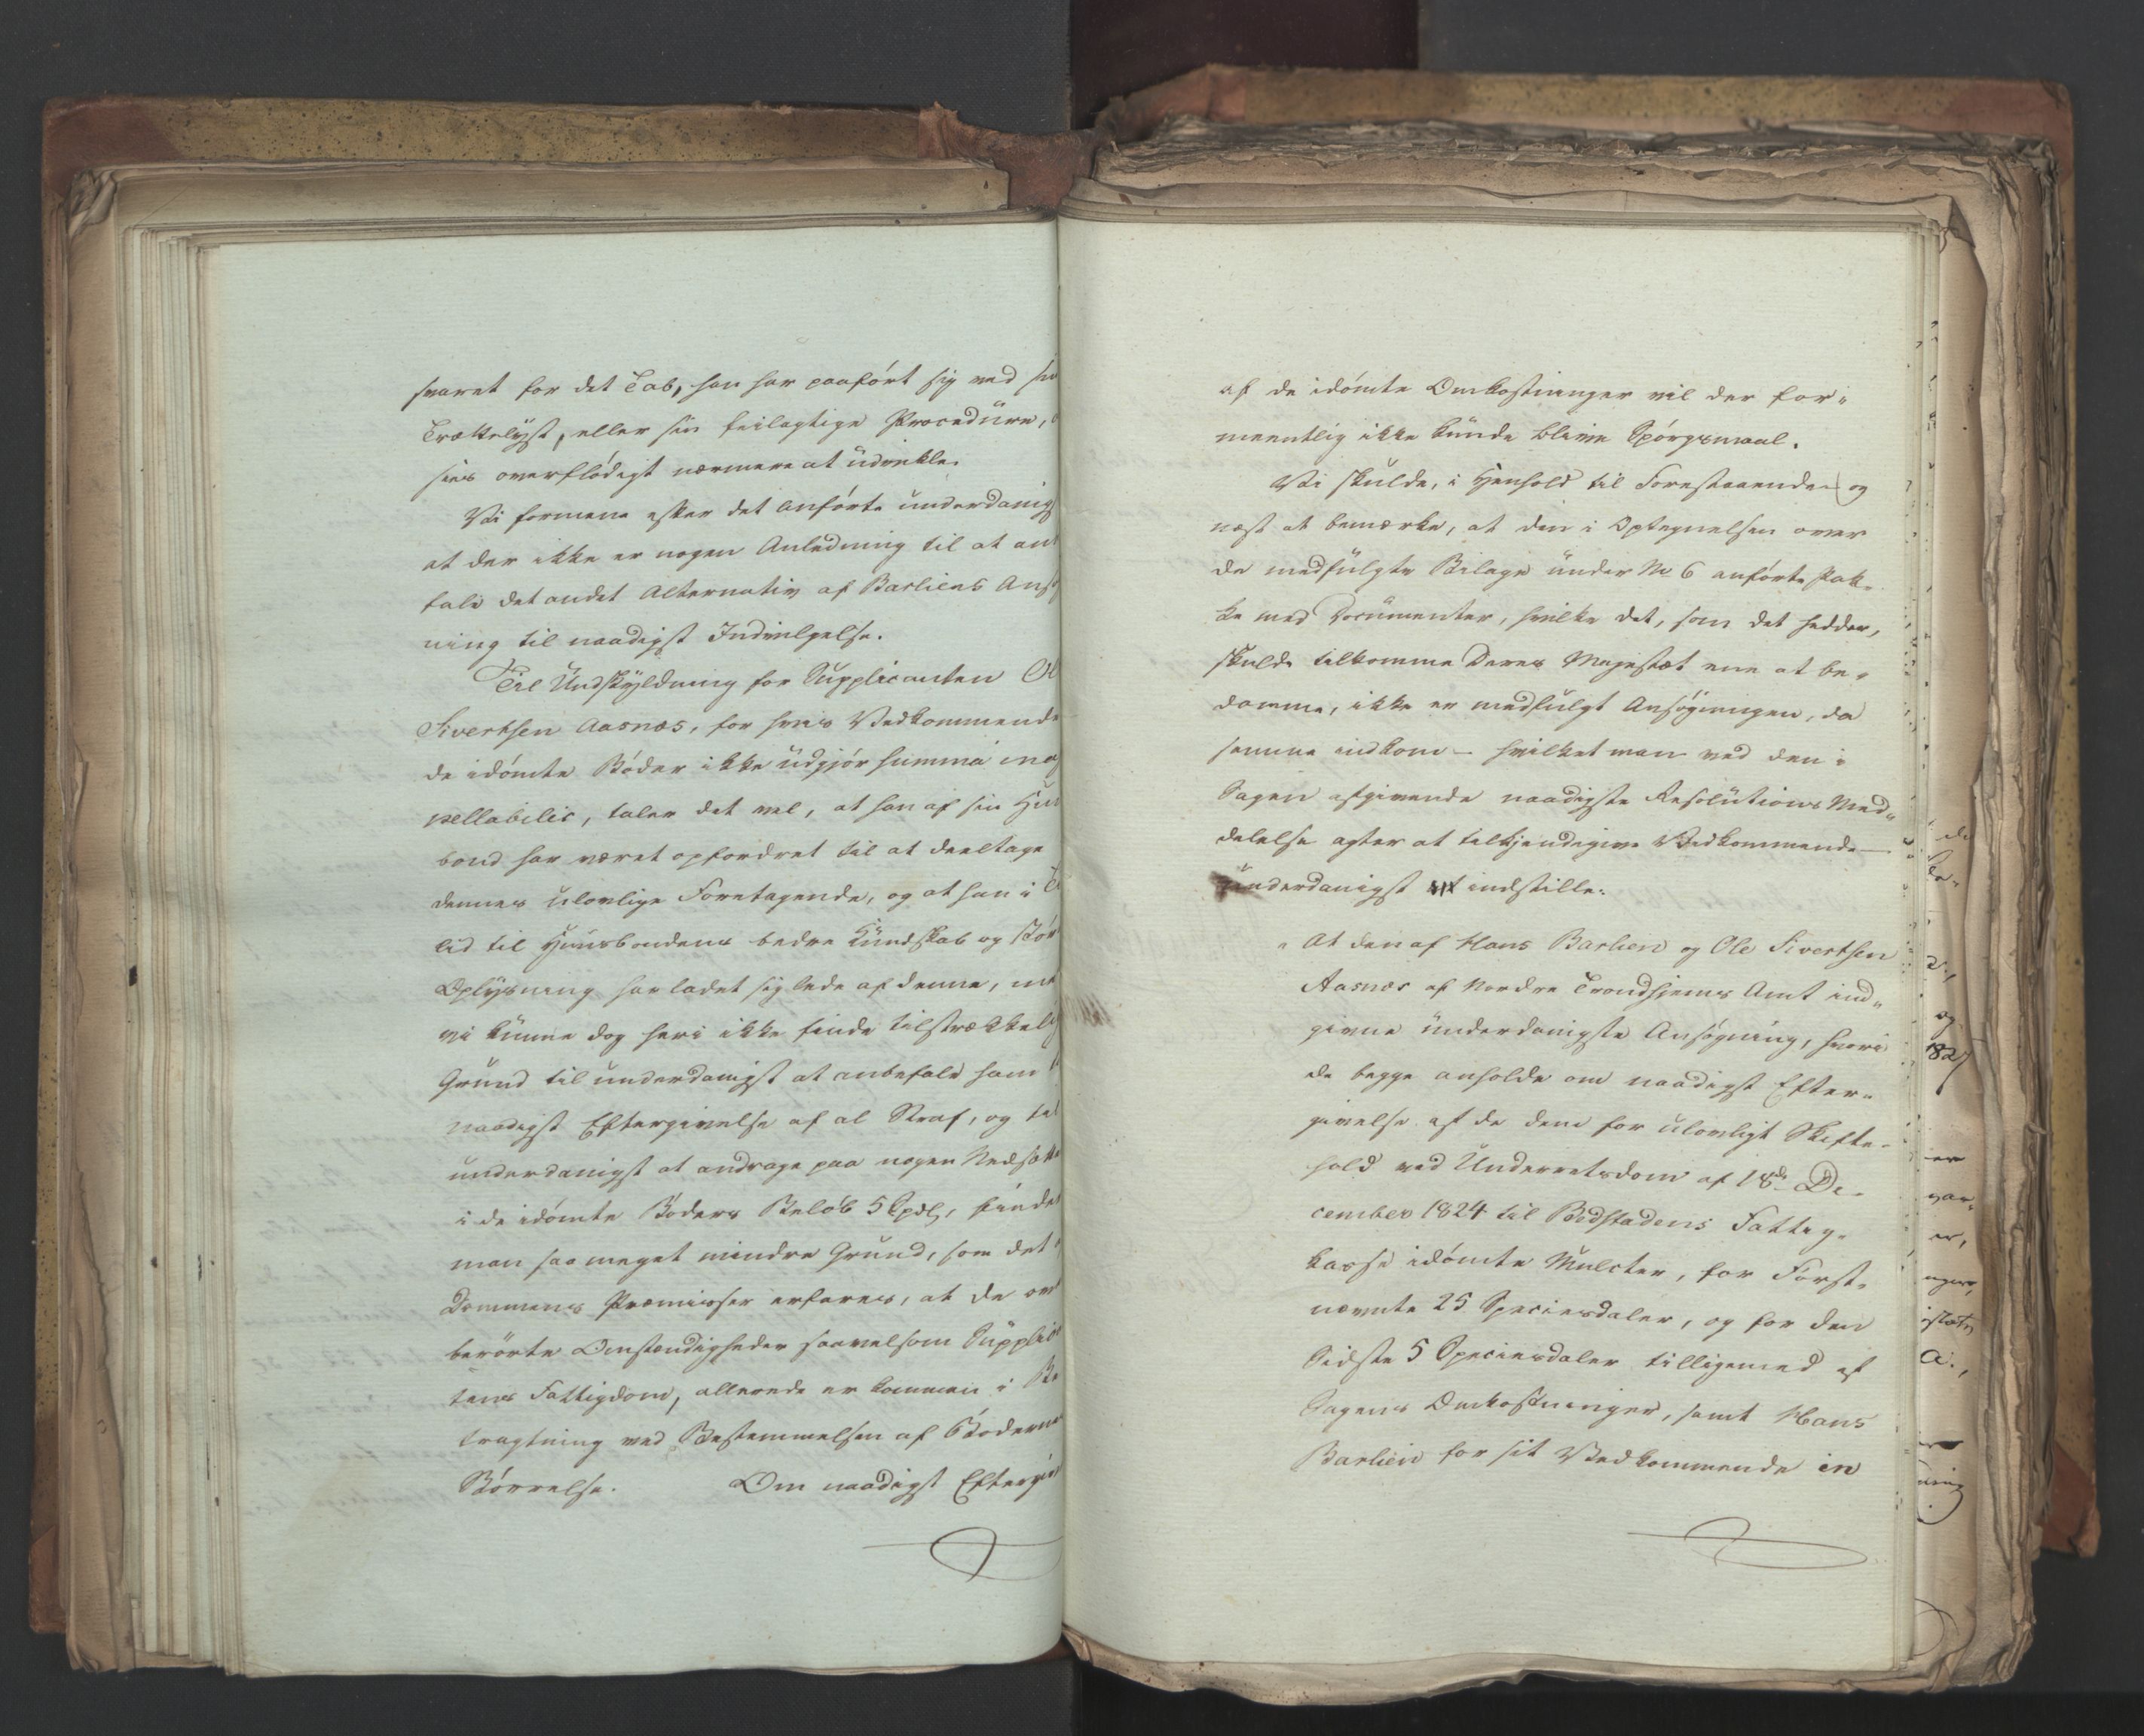 svaret for det Tab, han har paaført sig ved sin
Trættelyst, eller sin feilagtige Procedure,
sees overflødigt nærmere at udvikle.
Vi formene efter det anførte underdanigst
at der ikke er nogen Anledning til at anbe
fale det andet Alternativ af Barliens Ansøg
ning til naadigst Indvilgelse.
Til Undskyldning for Supplicanten Ole
Sivertsen Aasnæs, for hvis Vedkommende
de idømte Bøder ikke udgjør summa inap
pellabilis, taler det vel, at han af sin Huus
bond har været opfordret til at deeltage i
dennes ulovlige Foretagende, og at han i Til
lid til Huusbondens bedre Kundskab og større
Oplysning har ladet sig lede af denne, men
vi kunne dog heri ikke finde tilstrækkelig
Grund til underdanigst at anbefale ham til
naadigst Eftergivelse af al Straf, og til
underdanigst at andrage paa nogen Nedsættelse
i de idømte Bøders Beløb 5 Spdlr, finder
man saa meget mindre Grund, som det af
Dommens Præmisser erfares, at de oven
berørte Omstændigheder saavelsom Supplican
tens Fattigdom, allerede er kommen i Be
tragtning ved Bestemmelsen af Bødernes
Størrelse. Om naadigst Eftergivelse
af de idømte Omkostninger vil der for-
meentlig ikke kunde blive Spørgsmaal.
Vi skulde, i Henhold til Forestaaende og
næst at bemærke, at den i Optegnelsen over
de medfulgte Bilage under No 6 anførte Pak-
ke med Documenter, hvilke det, som det hedder,
skulde tilkomme Deres Majestæt ene at be-
dømme, ikke er medfulgt Ansøgningen, da
samme indkom – hvilket man ved den i
Sagen afgivende naadigste Resolutions Med-
delelse agter at tilkjendegive Vedkommende –
underdanigst indstille:
"At den af Hans Barlien og Ole Sivertsen
Aasnæs af Nordre Trondhjems Amt ind-
givne underdanigste Ansøgning, hvori
de begge anholde om naadigst Efter-
givelse af de dem for ulovligt Skifte-
hold ved Underretsdom af 18de De-
cember 1824 til Bodstadens Fattig-
kasse idømte Mulcter, for Først-
nævnte 25 Speciesdaler, og for den
Sidste 5 Speciesdaler tilligemed af
Sagens Omkostninger, samt Hans
Barlien for sit Vedkommende in
og
1827
er
er,